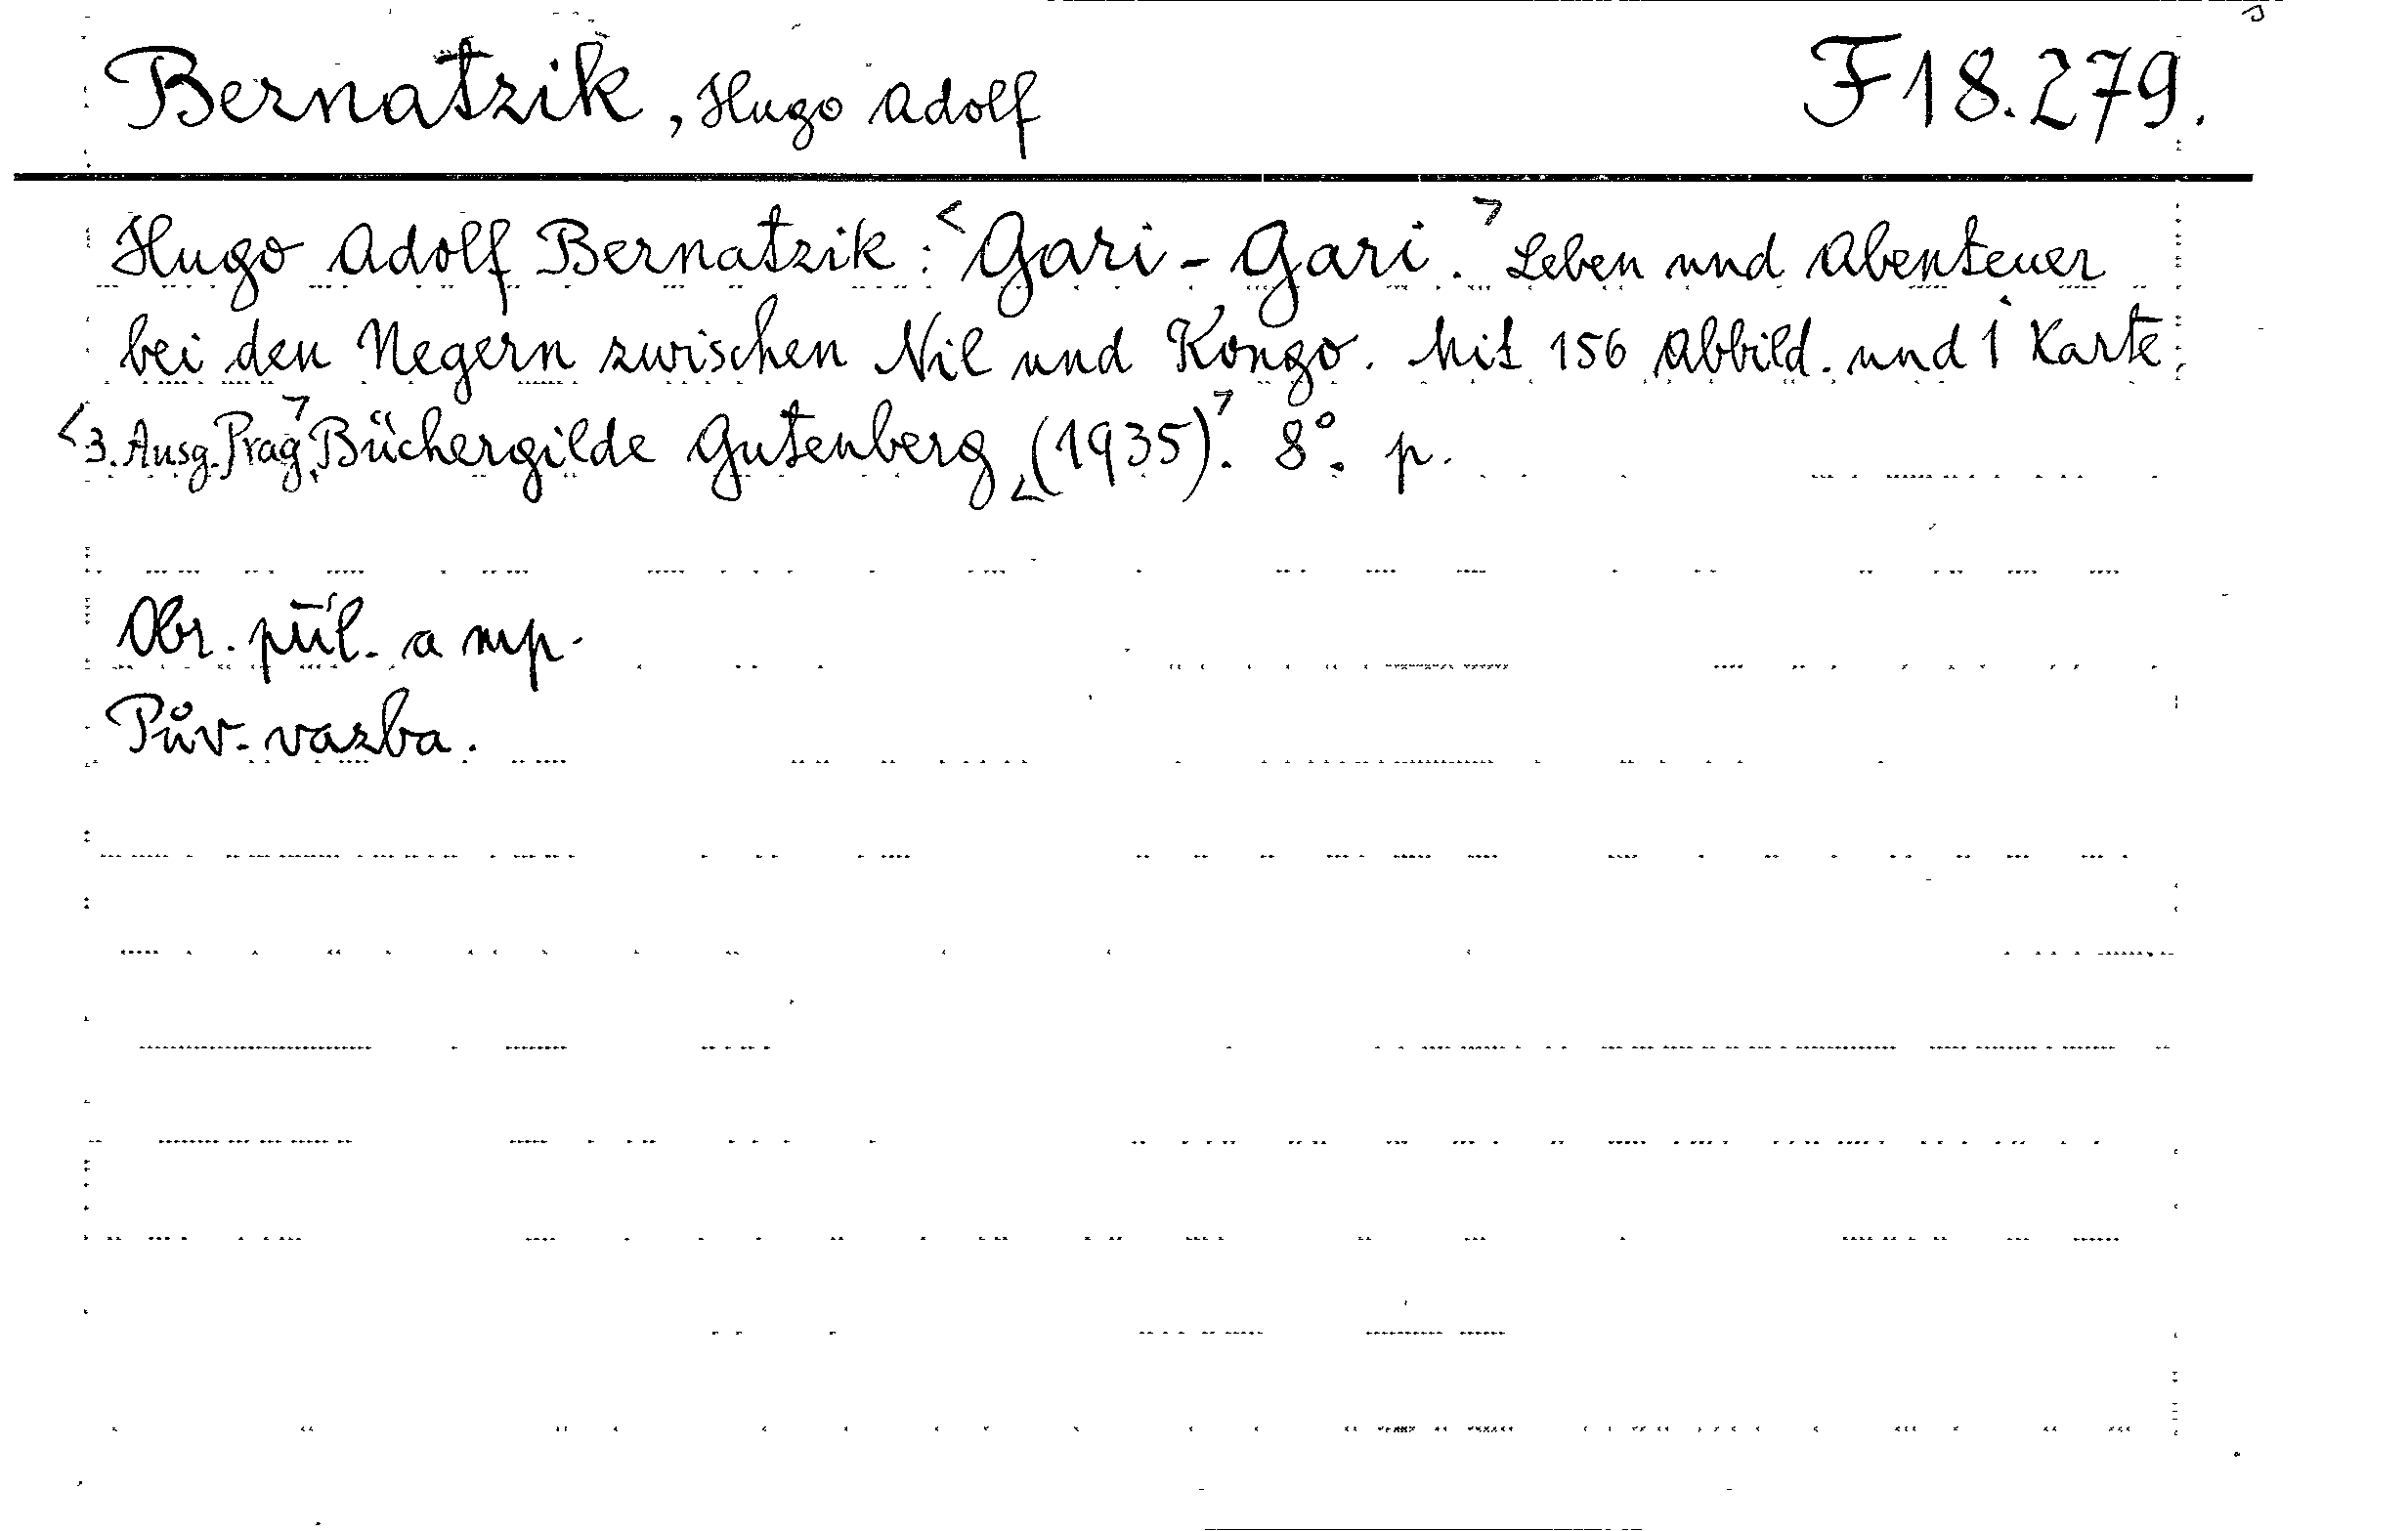 Bernatzik, Hugo Adolf F 18.279.
Hugo Adolf Bernatzik: <Gari-Gari.> Leben und Abenteuer
bei den Negern zwischen Nil und Kongo. Mit 156 Abbild. und 1 Karte.
<3. Ausg. Prag>, Büchergilde Gutenberg <(1935)>. 8°. p.
Obr. příl. a mp.
Pův. vazba.